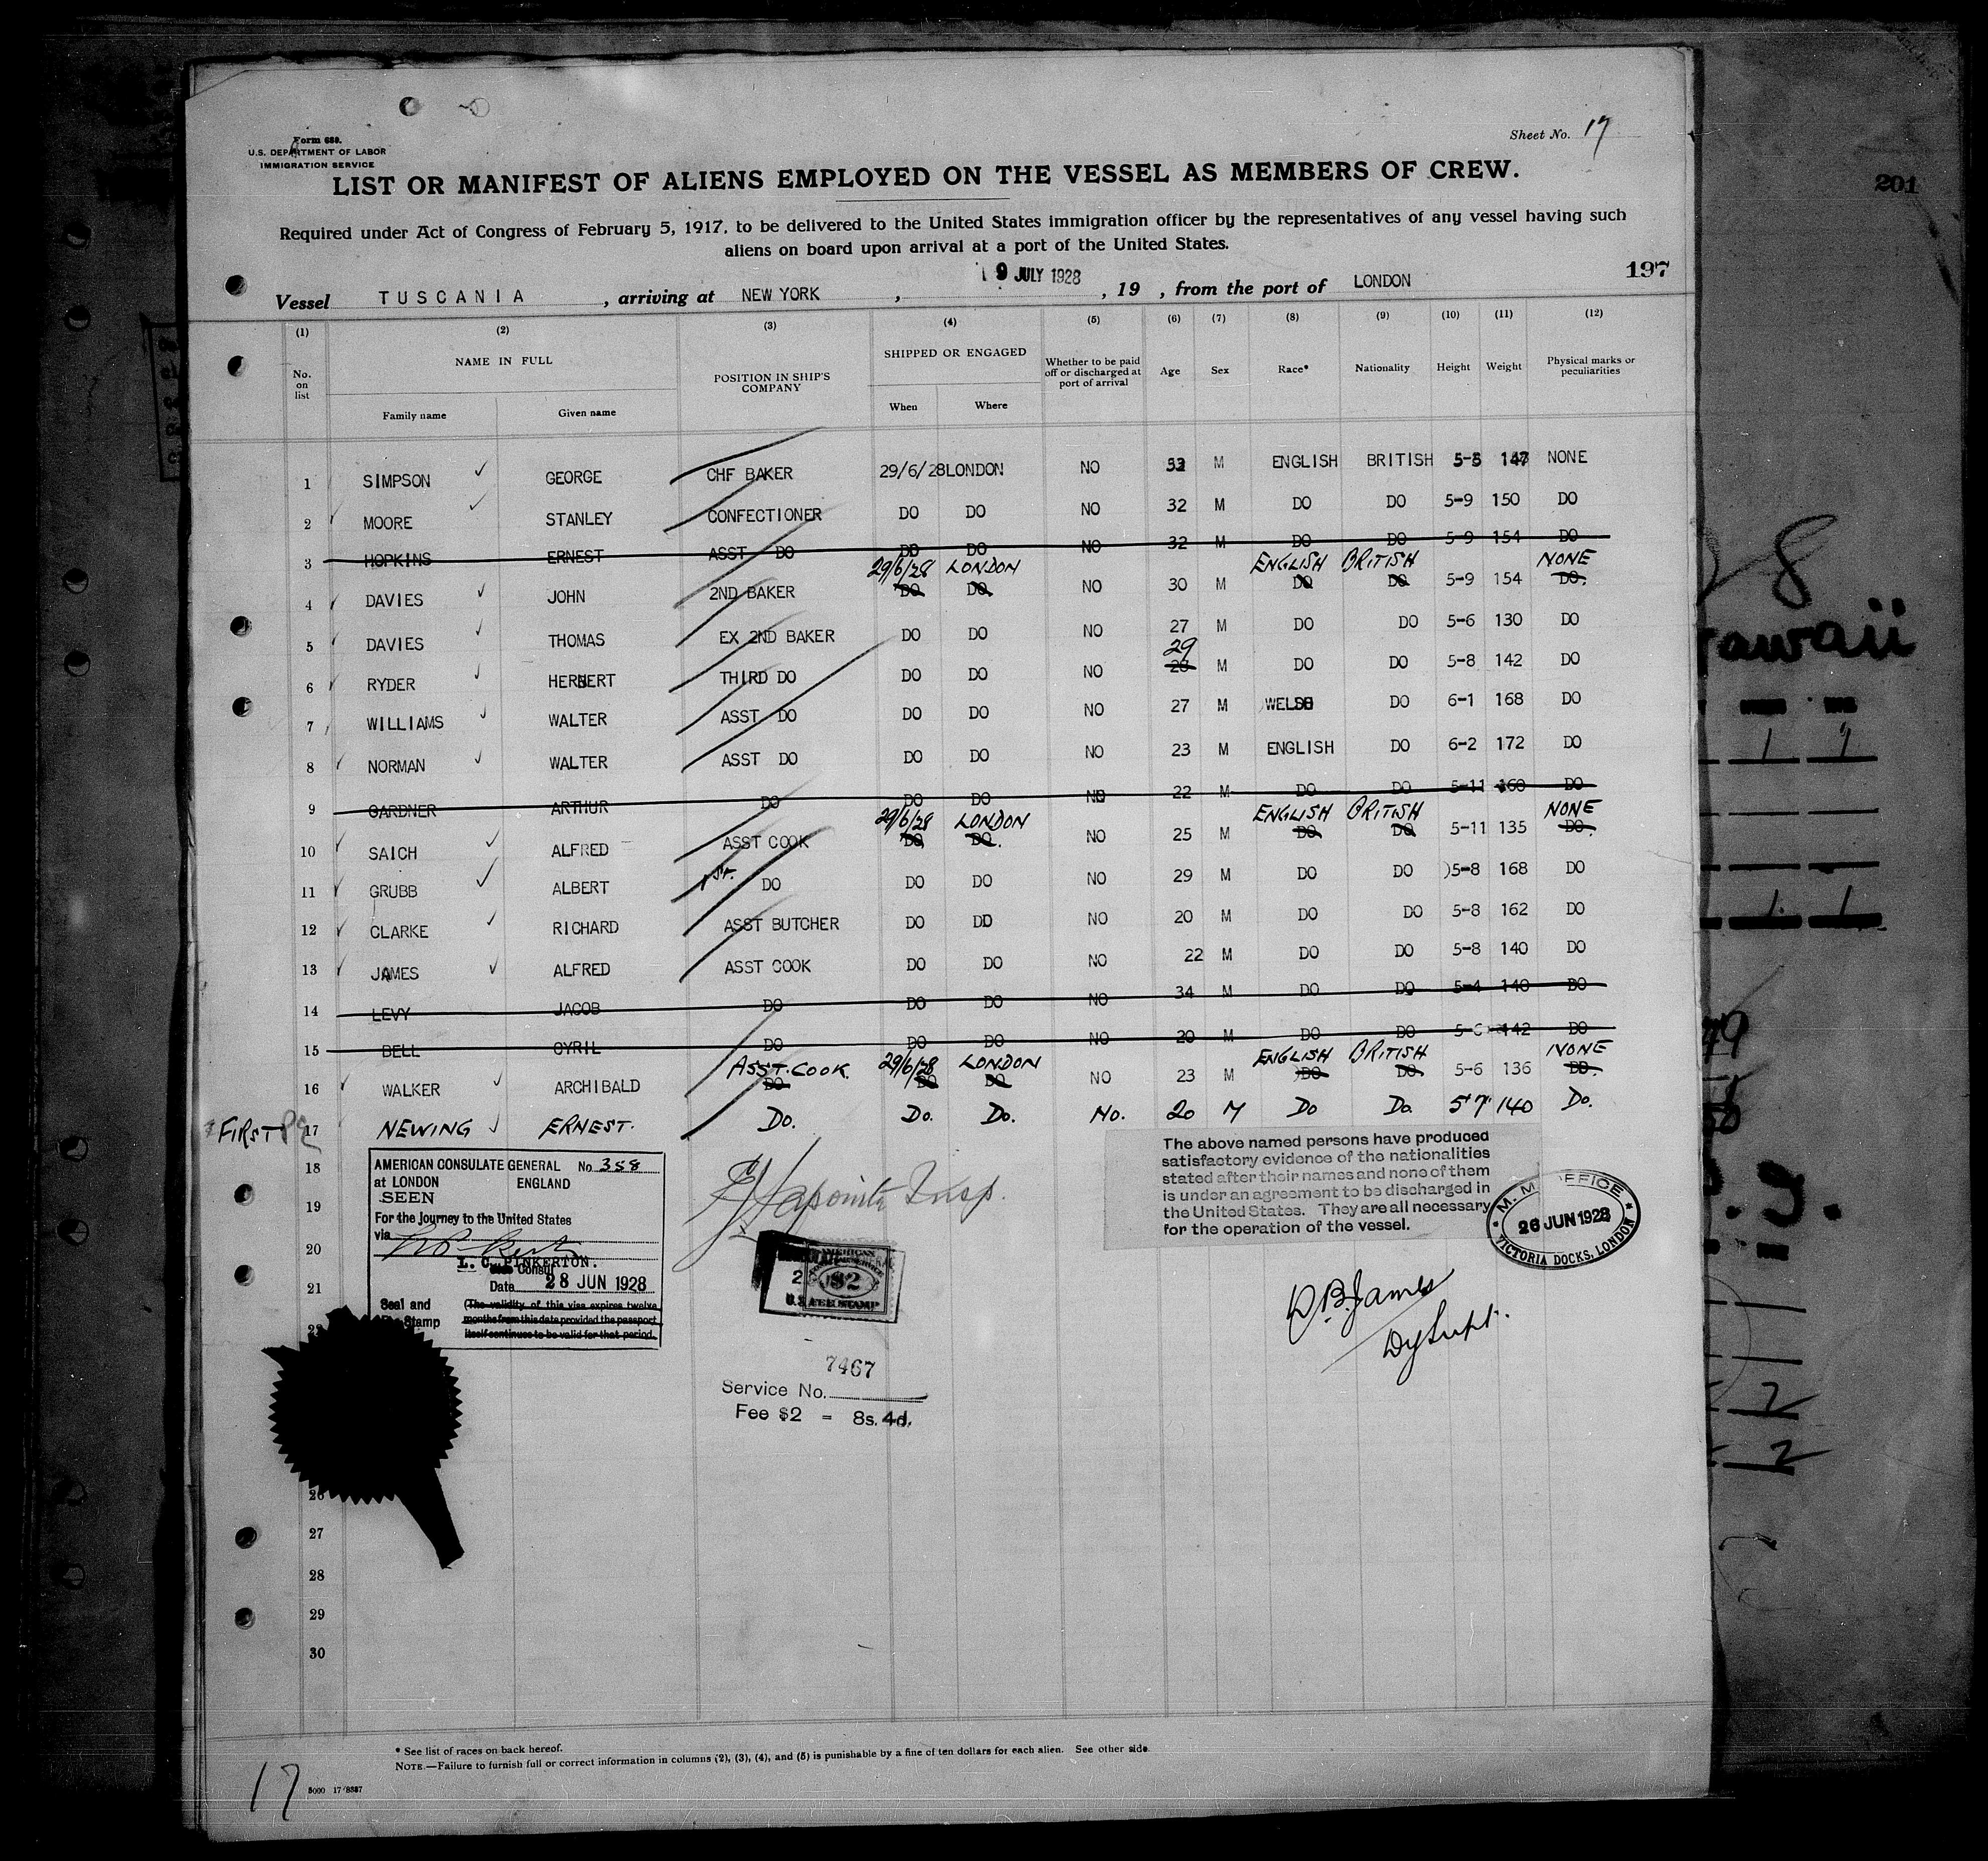 Form 689.
U.S. DEPARTMENT OF LABOR
IMMIGRATION SERVICE
Sheet No. 17
201
LIST OR MANIFEST OF ALIENS EMPLOYED ON THE VESSEL AS MEMBERS OF CREW.
Required under Act of Congress of February 5, 1917, to be delivered to the United States immigration officer by the representatives of any vessel having such
aliens on board upon arrival at a port of the United States.
197
Vessel TUSCANIA, arriving at NEW YORK, 9 JULY 1928, 19 , from the port of LONDON
(1) (2) (3) (4) (5) (6) (7) (8) (9) (10) (11) (12)
No. on list NAME IN FULL Family name Given name POSITION IN SHIP'S COMPANY SHIPPED OR ENGAGED When Where Whether to be paid off or discharged at port of arrival Age Sex Race* Nationality Height Weight Physical marks or peculiarities
1 SIMPSON GEORGE CHF BAKER 29/6/28 LONDON NO M ENGLISH BRITISH NONE
2 MOORE STANLEY CONFECTIONER DO DO NO 32 M DO DO 5-9 150 DO
3 HOPKINS ERNEST ASST DO DO DO NO 32 M DO DO 5-9 154 DO
29/6/28 LONDON ENGLISH BRITISH NONE
4 DAVIES JOHN 2ND BAKER DO DO NO 30 M DO DO 5-9 154 DO.
5 DAVIES THOMAS EX 2ND BAKER DO DO NO 27 M DO DO 5-6 130 DO
29
6 RYDER HERBERT THIRD DO DO DO NO M DO DO 5-8 142 DO
7 WILLIAMS WALTER ASST DO DO DO NO 27 M WELSH DO 6-1 168 DO
8 NORMAN WALTER ASST DO DO DO NO 23 M ENGLISH DO 6-2 172 DO
9 GARDNER ARTHUR DO DO DO NO 22 M DO DO 5-11 160 DO
29/6/28 LONDON ENGLISH BRITISH NONE
10 SAICH ALFRED ASST COOK DO DO. NO 25 M DO DO 5-11 135 DO.
11 GRUBB ALBERT 1ST. DO DO DO NO 29 M DO DO 5-8 168 DO
12 CLARKE RICHARD ASST BUTCHER DO DO NO 20 M DO DO 5-8 162 DO
13 JAMES ALFRED ASST COOK DO DO NO 22 M DO DO 5-8 140 DO
14 LEVY JACOB DO DO DO NO 34 M DO DO 5-4 140 DO
15 BELL CYRIL DO DO DO NO 20 M DO DO 5-6 142 DO
ASST. COOK. 29/6/28 LONDON ENGLISH BRITISH NONE
16 WALKER ARCHIBALD DO DO DO NO 23 M DO DO 5-6 136 DO.
FIRST 17 NEWING ERNEST. Do. Do. Do. No. 20 M Do Do. 5'7" 140 Do.
18
19
20
21
26
27
28
29
30
AMERICAN CONSULATE GENERAL No. 358
at LONDON ENGLAND
SEEN
For the journey to the United States
via
L. C. PINKERTON.
Vice Consul
Date 28 JUN 1928
Seal and Fee Stamp
(The validity of this visa expires twelve
months from this date provided the passport
itself continues to be valid for that period.
Insp.
AMERICAN
$2
U.S. FEE STAMP
7467
Service No.
Fee $2 = 8s. 4d.
The above named persons have produced
satisfactory evidence of the nationalities
stated after their names and none of them
is under an agreement to be discharged in
the United States. They are all necessary
for the operation of the vessel.
M. M. OFFICE
26 JUN 1928
VICTORIA DOCKS, LONDON
D.B. James
Dy Supt.
* See list of races on back hereof.
NOTE.—Failure to furnish full or correct information in columns (2), (3), (4), and (5) is punishable by a fine of ten dollars for each alien. See other side.
17